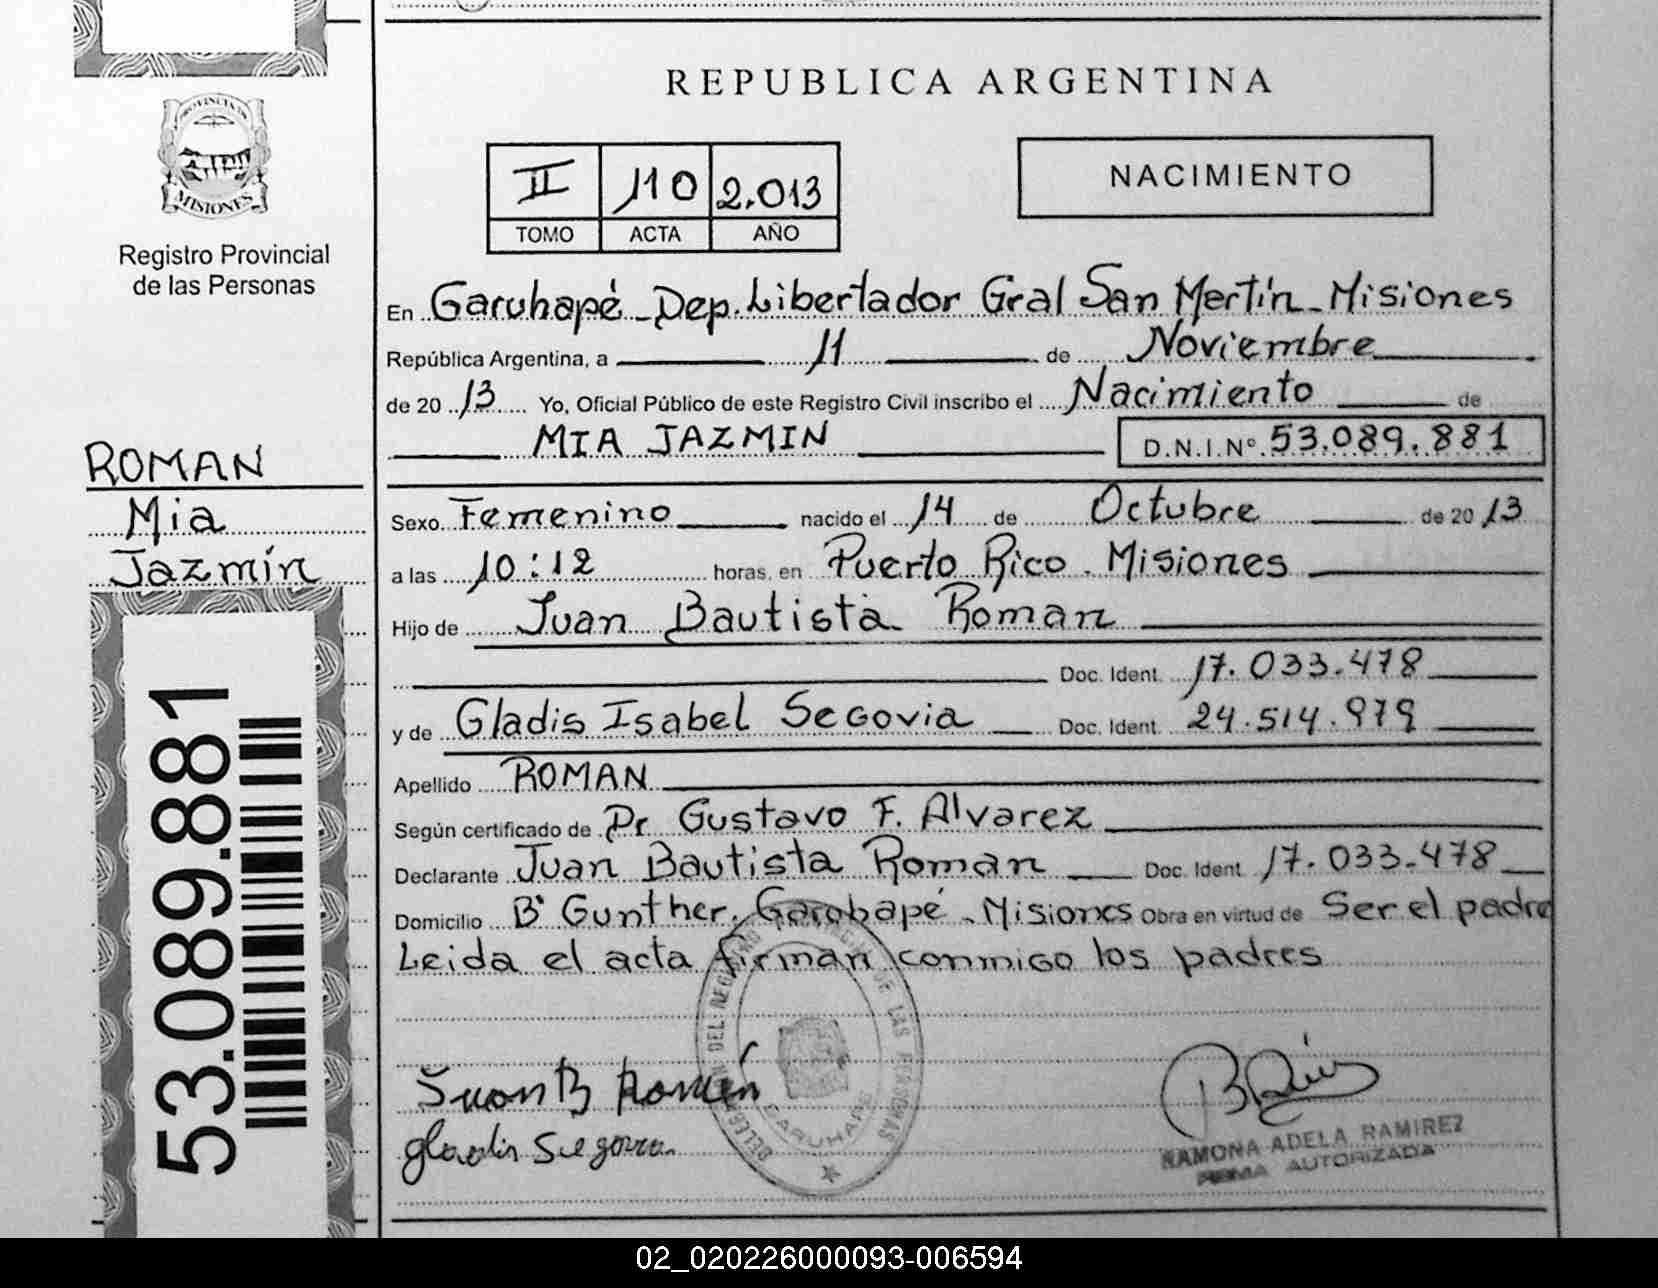 PROVINCIA DE
MISIONES
Registro Provincial
de las Personas
ROMAN
Mia
Jazmín
53.089.881
REPUBLICA ARGENTINA
II 110 2.013
TOMO ACTA AÑO
NACIMIENTO
En Garuhapé - Dep. Libertador Gral San Martín - Misiones
República Argentina, a 11 de Noviembre
de 20 13 Yo, Oficial Público de este Registro Civil inscribo el Nacimiento de
MIA JAZMIN D.N.I.Nº 53.089.881
Sexo Femenino nacido el 14 de Octubre de 20 13
a las 10:12 horas, en Puerto Rico. Misiones
Hijo de Juan Bautista Roman
Doc. Ident. 17.033.478
y de Gladis Isabel Segovia Doc. Ident. 24.514.979
Apellido ROMAN
Según certificado de Dr Gustavo F. Alvarez
Declarante Juan Bautista Roman Doc. Ident 17.033.478
Domicilio Bº Gunther. Garuhapé - Misiones Obra en virtud de Ser el padre
Leida el acta firman conmigo los padres
Juan B Román
Gladis Segovia
DEL REGISTRO PROVINCIAL DE LAS PERSONAS
GARUHAPE
RAMONA ADELA RAMIREZ
FIRMA AUTORIZADA
02_020226000093-006594